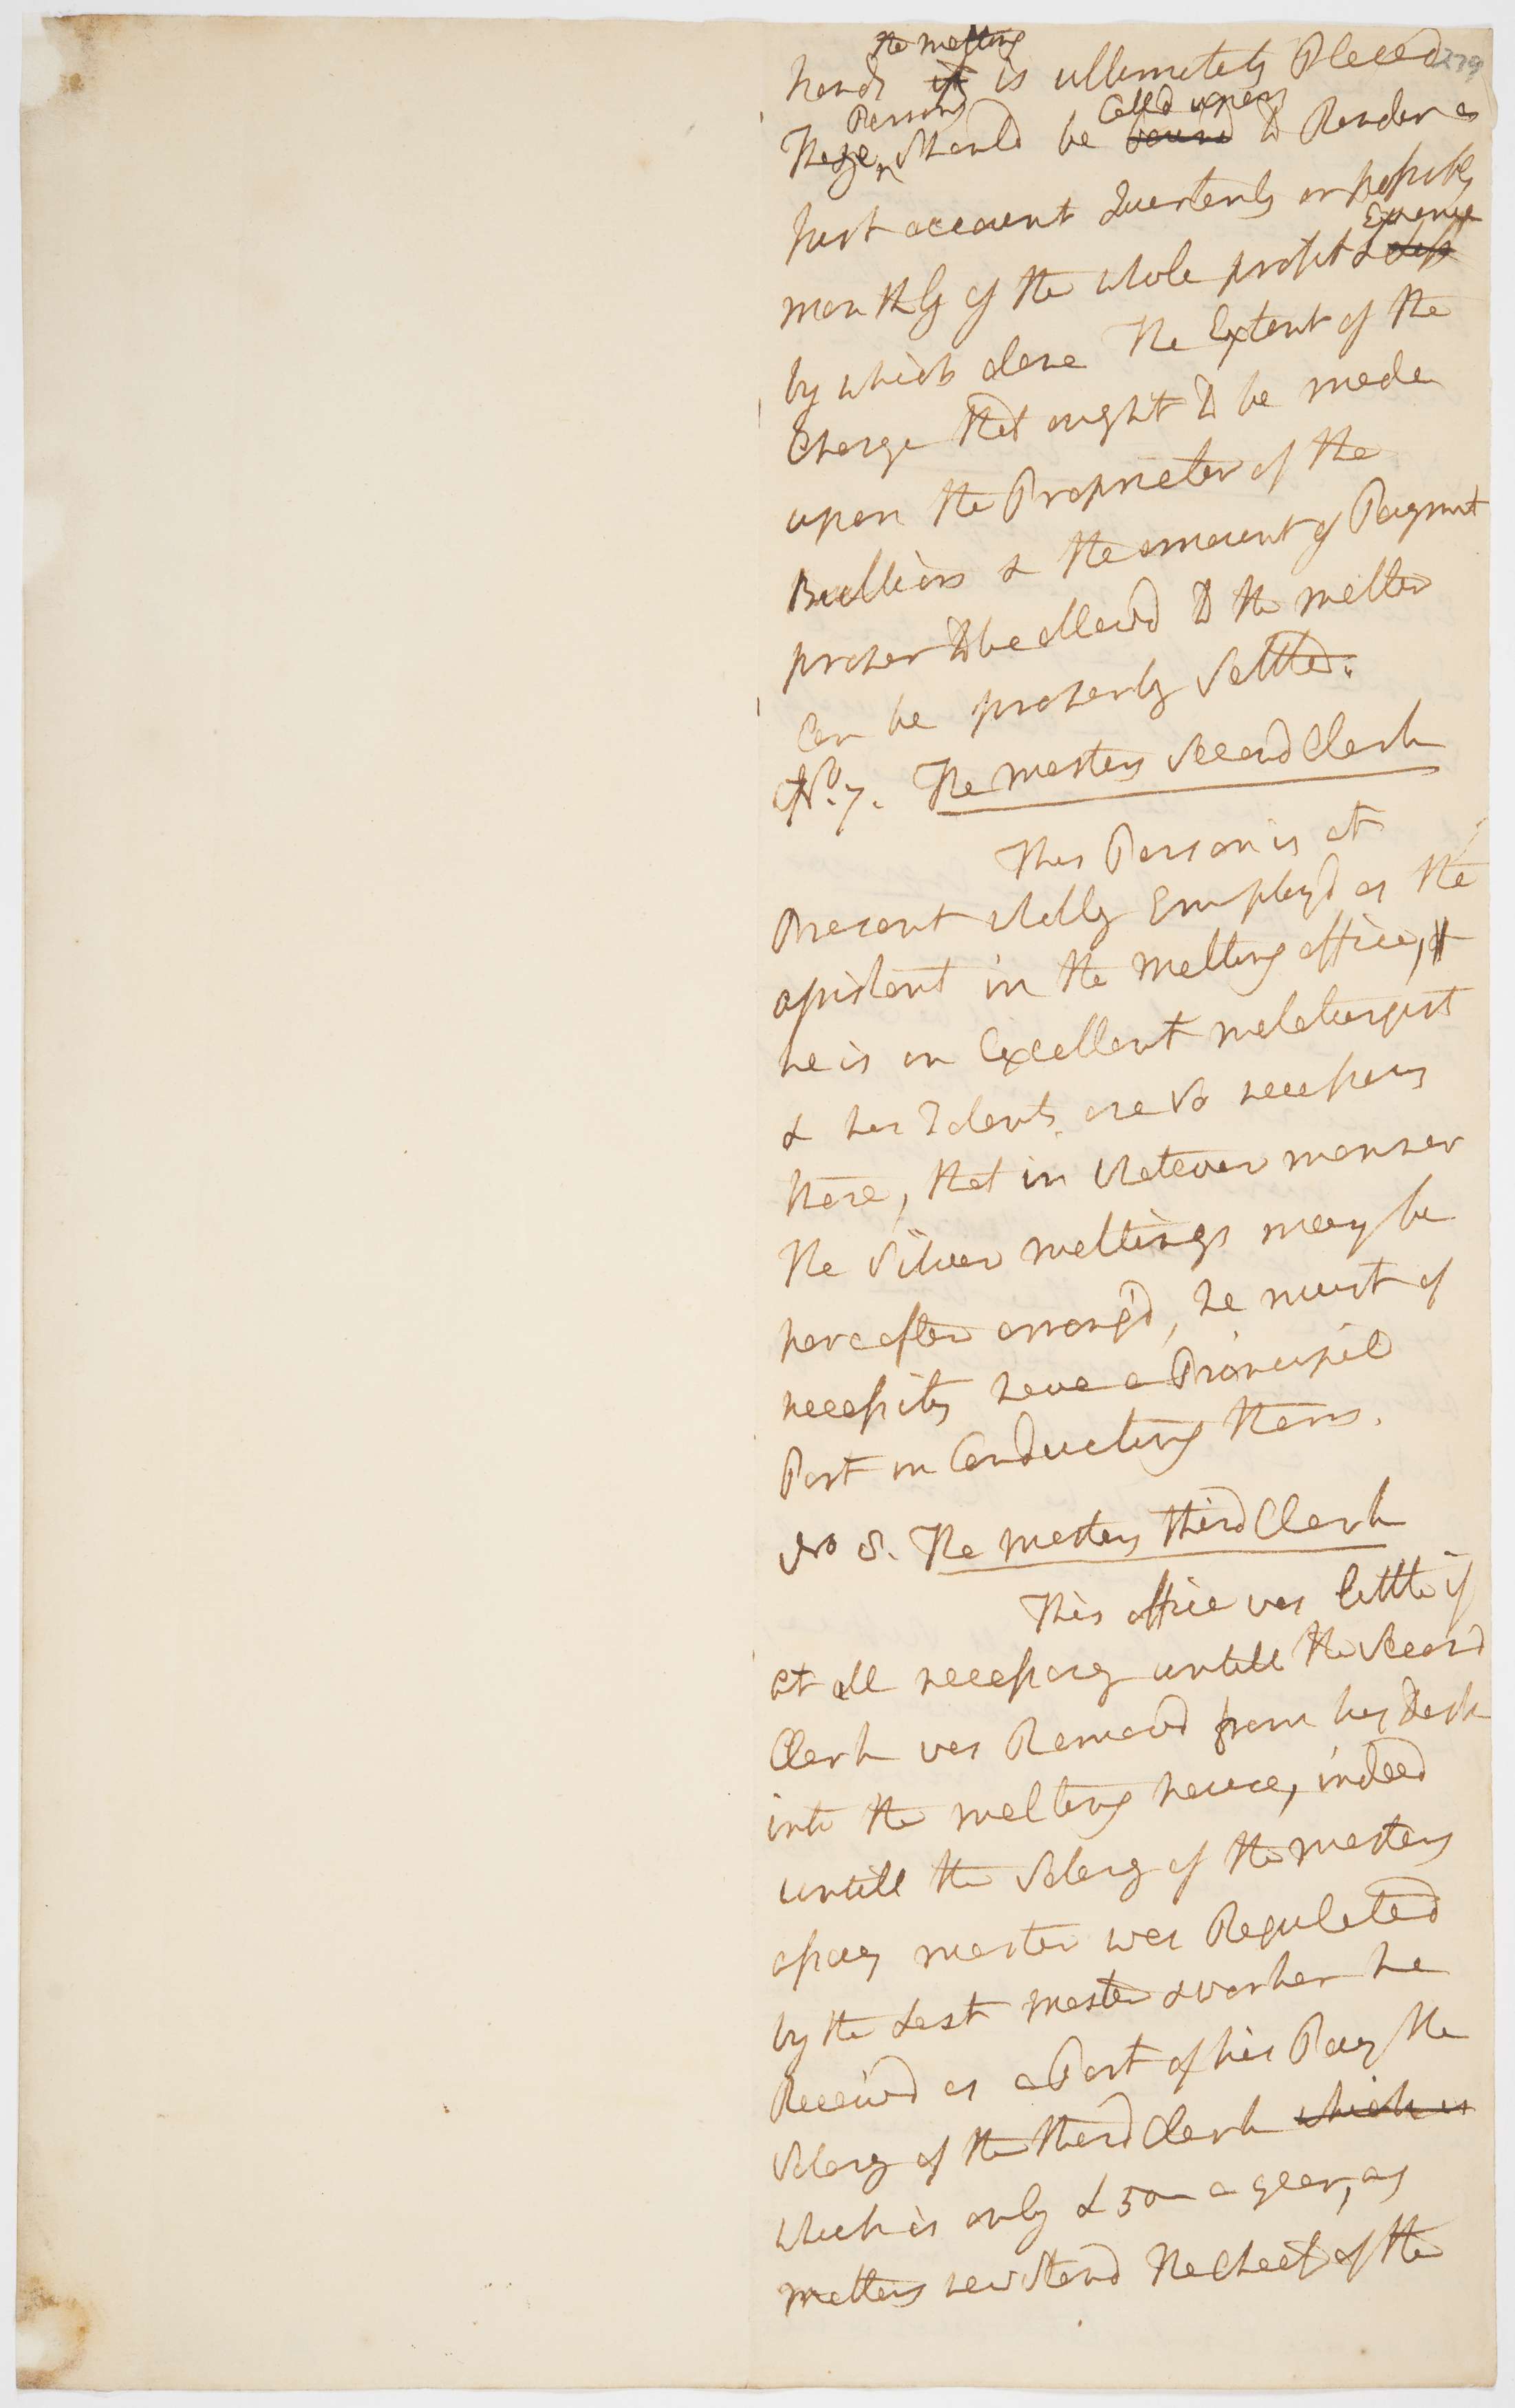 279
the melting
hands it is ultimately Placed
Persons Calld upon
These should be bound to Render a
Just account Quarterly or possibly
Expence
monthly of the whole profit & loss
by which alone The Extent of the
Charge that ought to be made
upon the Proprietor of the
Bullion & the amount of Paymnt
proper to be allowd to the melter
Can be properly Settled.
No. 7. The masters Second Clerk
This Person is at
Present wholly Employd as the
assistant in the melting office,
he is an Excellent metalurgist
& his Talents are so necessary
here, that in whatever manner
the Silver meltings may be
hereafter arrangd, he must of
necessity have a Principal
Part in Conducting them.
No 8. The masters third Clerk
This office was little if
at all necessary untill the Second
Clerk was Removd from his Desk
into the melting house, indeed
untill the Salary of the masters
assay master was Regulated
by the Last master & worker he
Receivd as a Part of his Pay the
Salary of the third Clerk which is
which is only £50 a year, as
matters now stand the Cheif of the